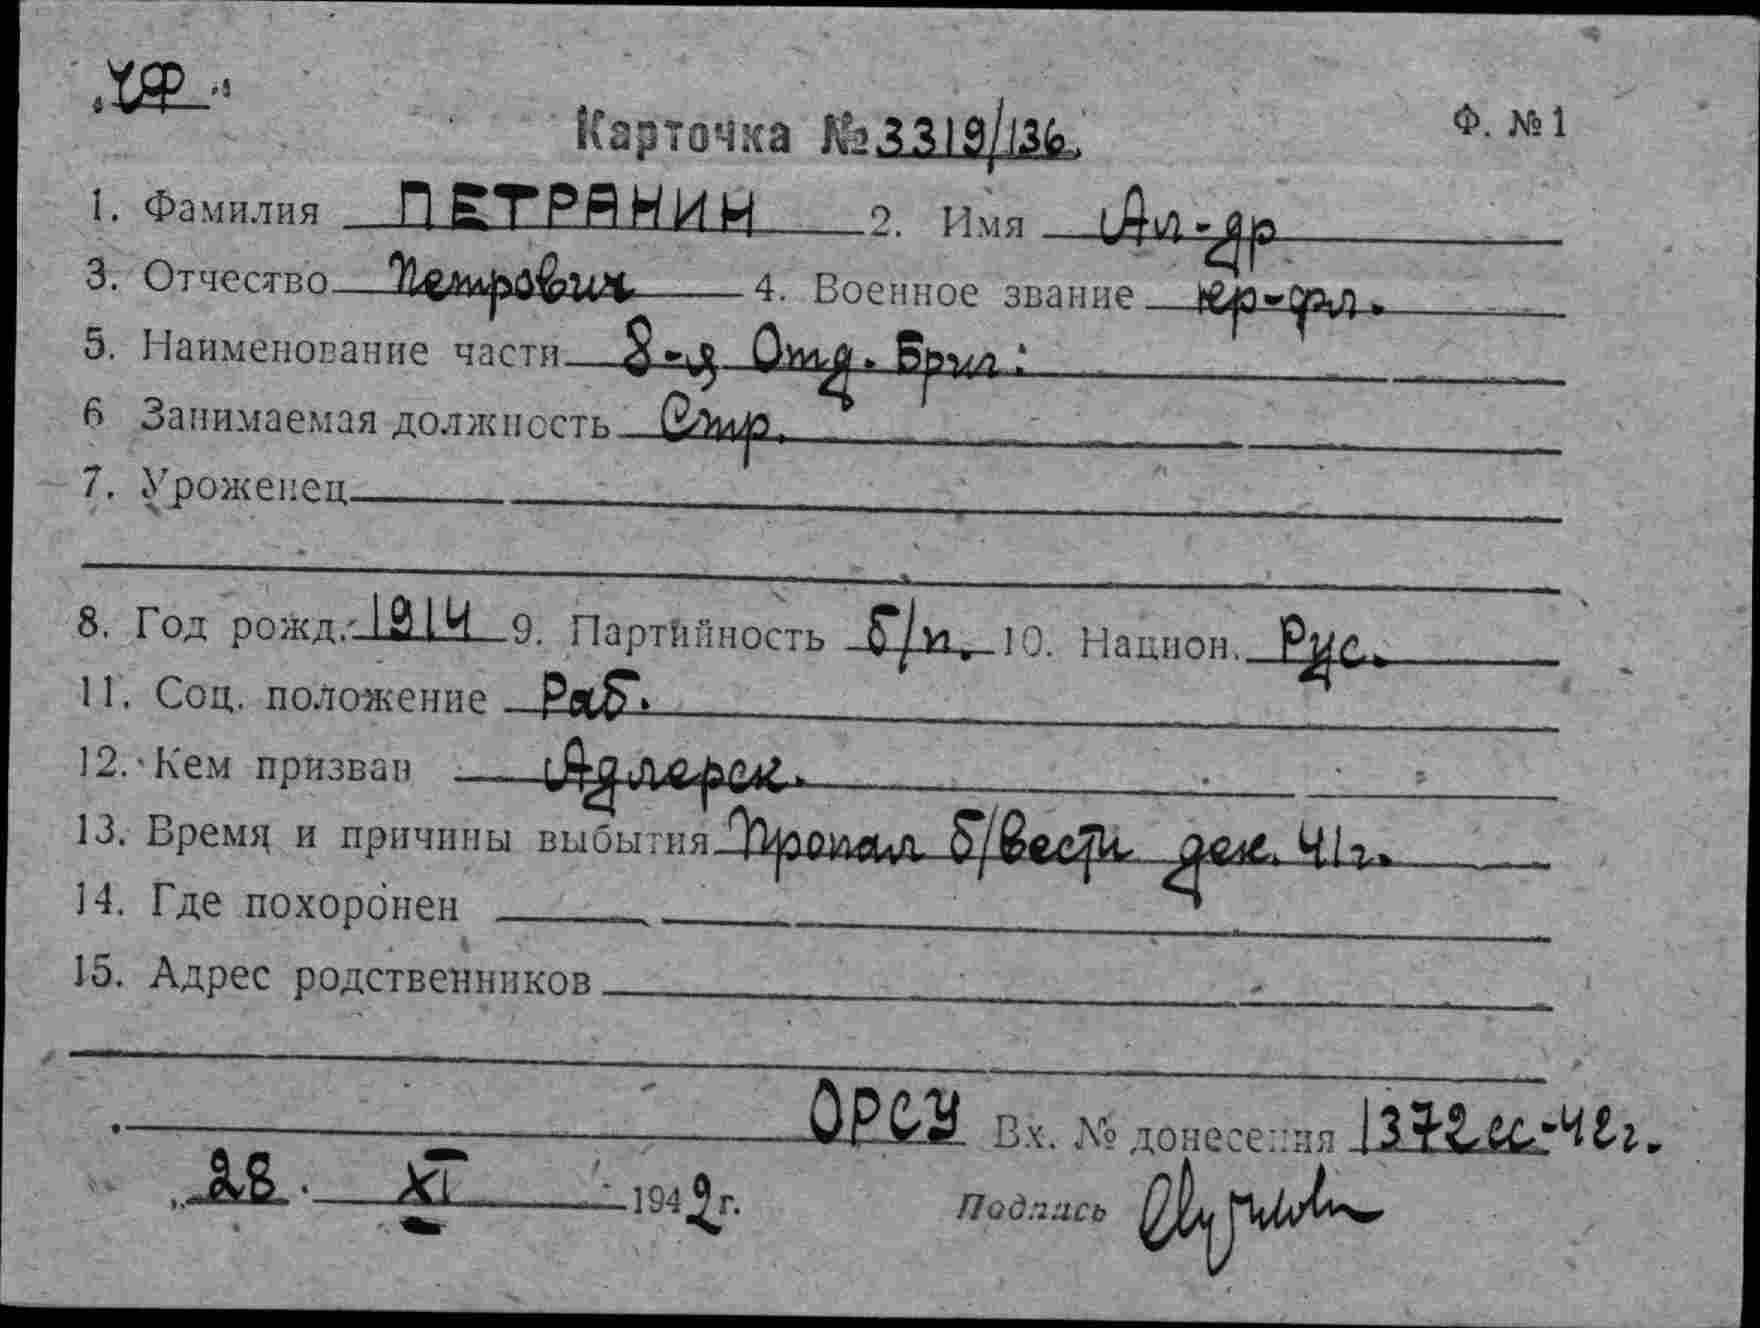 ЧФ
Карточка № 3319/136. Ф. № 1
1. Фамилия ПЕТРАНИН 2. Имя Ал-др
3. Отчество Петрович 4. Военное звание кр-фл.
5. Наименование части 8-я Отд. Бриг:
6 Занимаемая должность Стр.
7. Уроженец
8. Год рожд. 1914 9. Партийность б/п. 10. Национ. Рус.
11. Соц. положение Раб.
12. Кем призван Адлерск.
13. Время и причины выбытия Пропал б/вести дек. 41г.
14. Где похоронен
15. Адрес родственников
ОРСУ Вх. № донесения 1372сс-42г.
„28. XI 1942г. Подпись